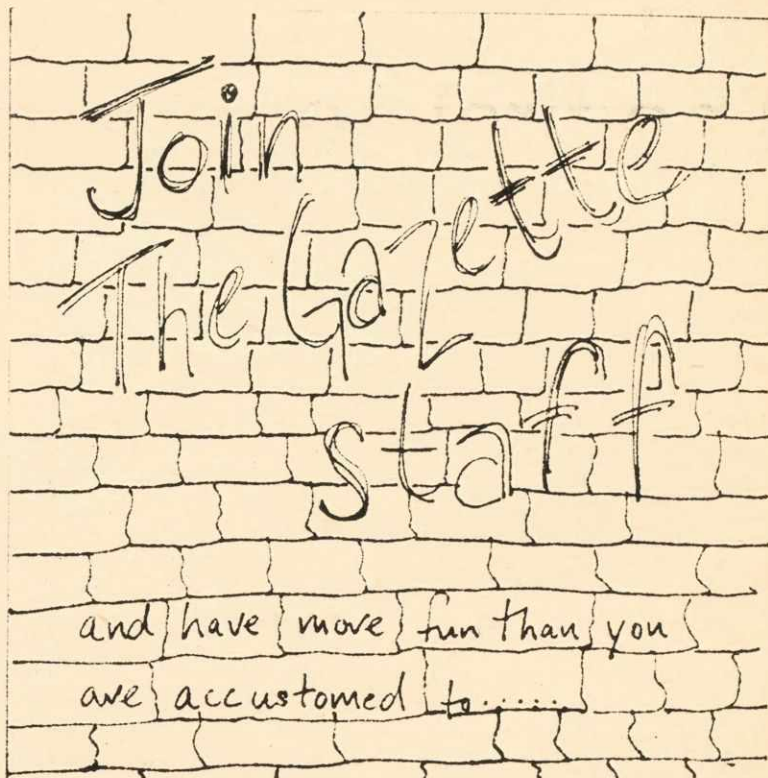 Join
The Gazette
staff
and have more fun than you
are accustomed to.......